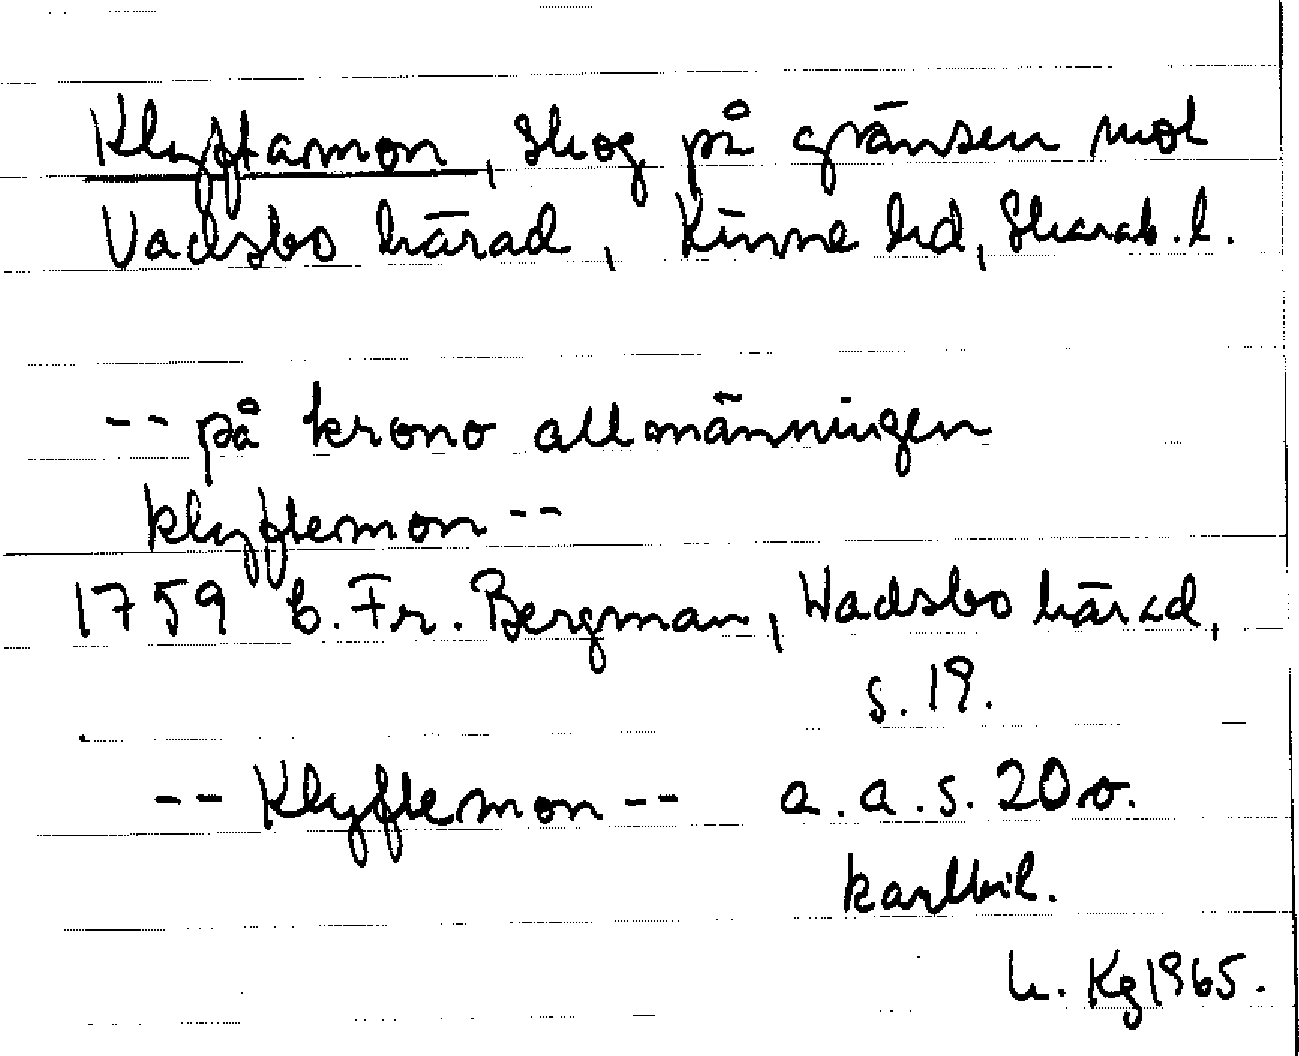 Klyftamon, skog på gränsen mot
Vadsbo härad, Kinne hd, Skarab. l.
-- på krono allmänningen
klyftemon --
1759 B. Fr. Bergman, Wadsbo härad,
s. 19.
-- Klyftemon -- a. a. s. 20 o.
kartbil.
Kg 1965.